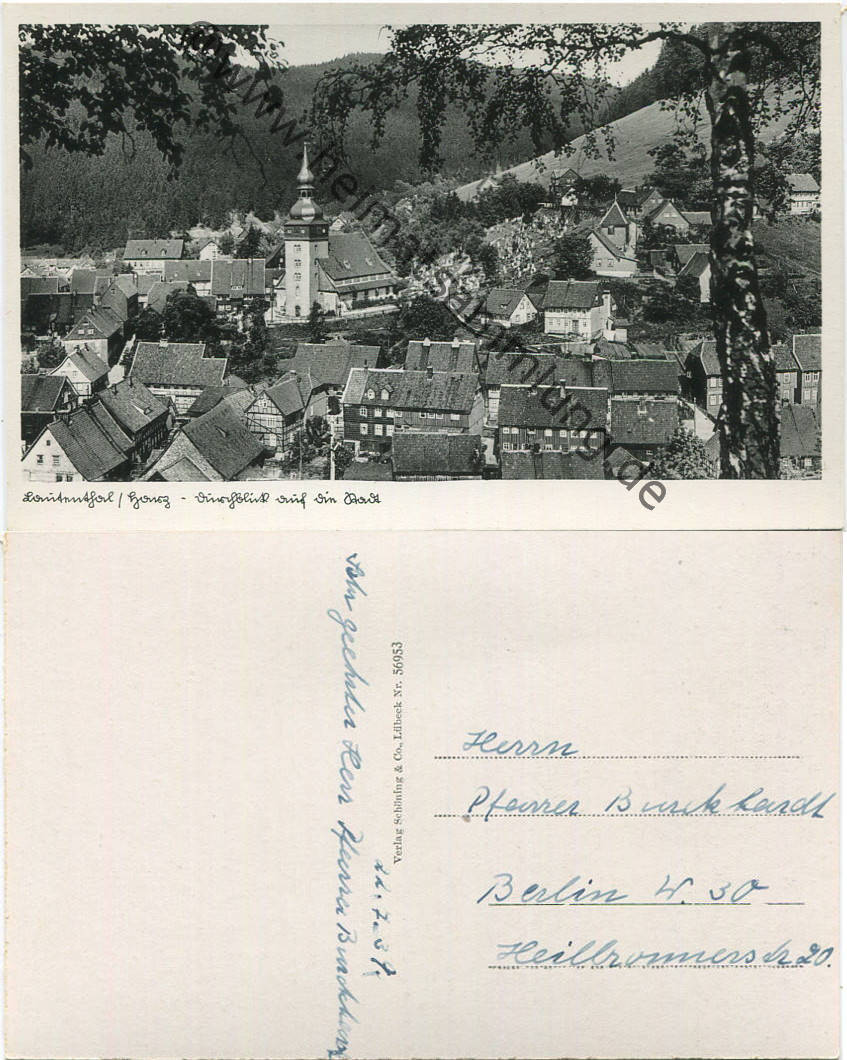 www.heimatsammlung.de
Lautenthal / Harz - Durchblick auf die Stadt
Sehr geehrter Herr Pfarrer Burckhardt
22.7.39.
Verlag Schöning & Co., Lübeck Nr. 56953
Herrn
Pfarrer Burckhardt
Berlin W. 30
Heilbronnerstr 20.